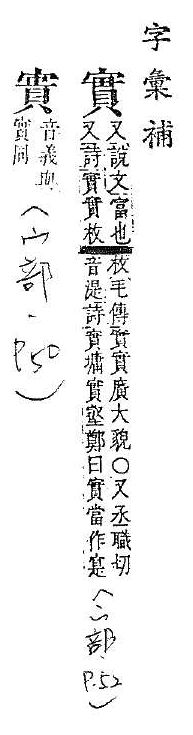 字彙補
實
又說文富也
又詩實實枚
枚毛傳實實廣大貌○又丞職切
音湜詩實墉實壑鄭曰實當作寔
(宀部 P.52)
音義與
實同
(宀部、P.50)